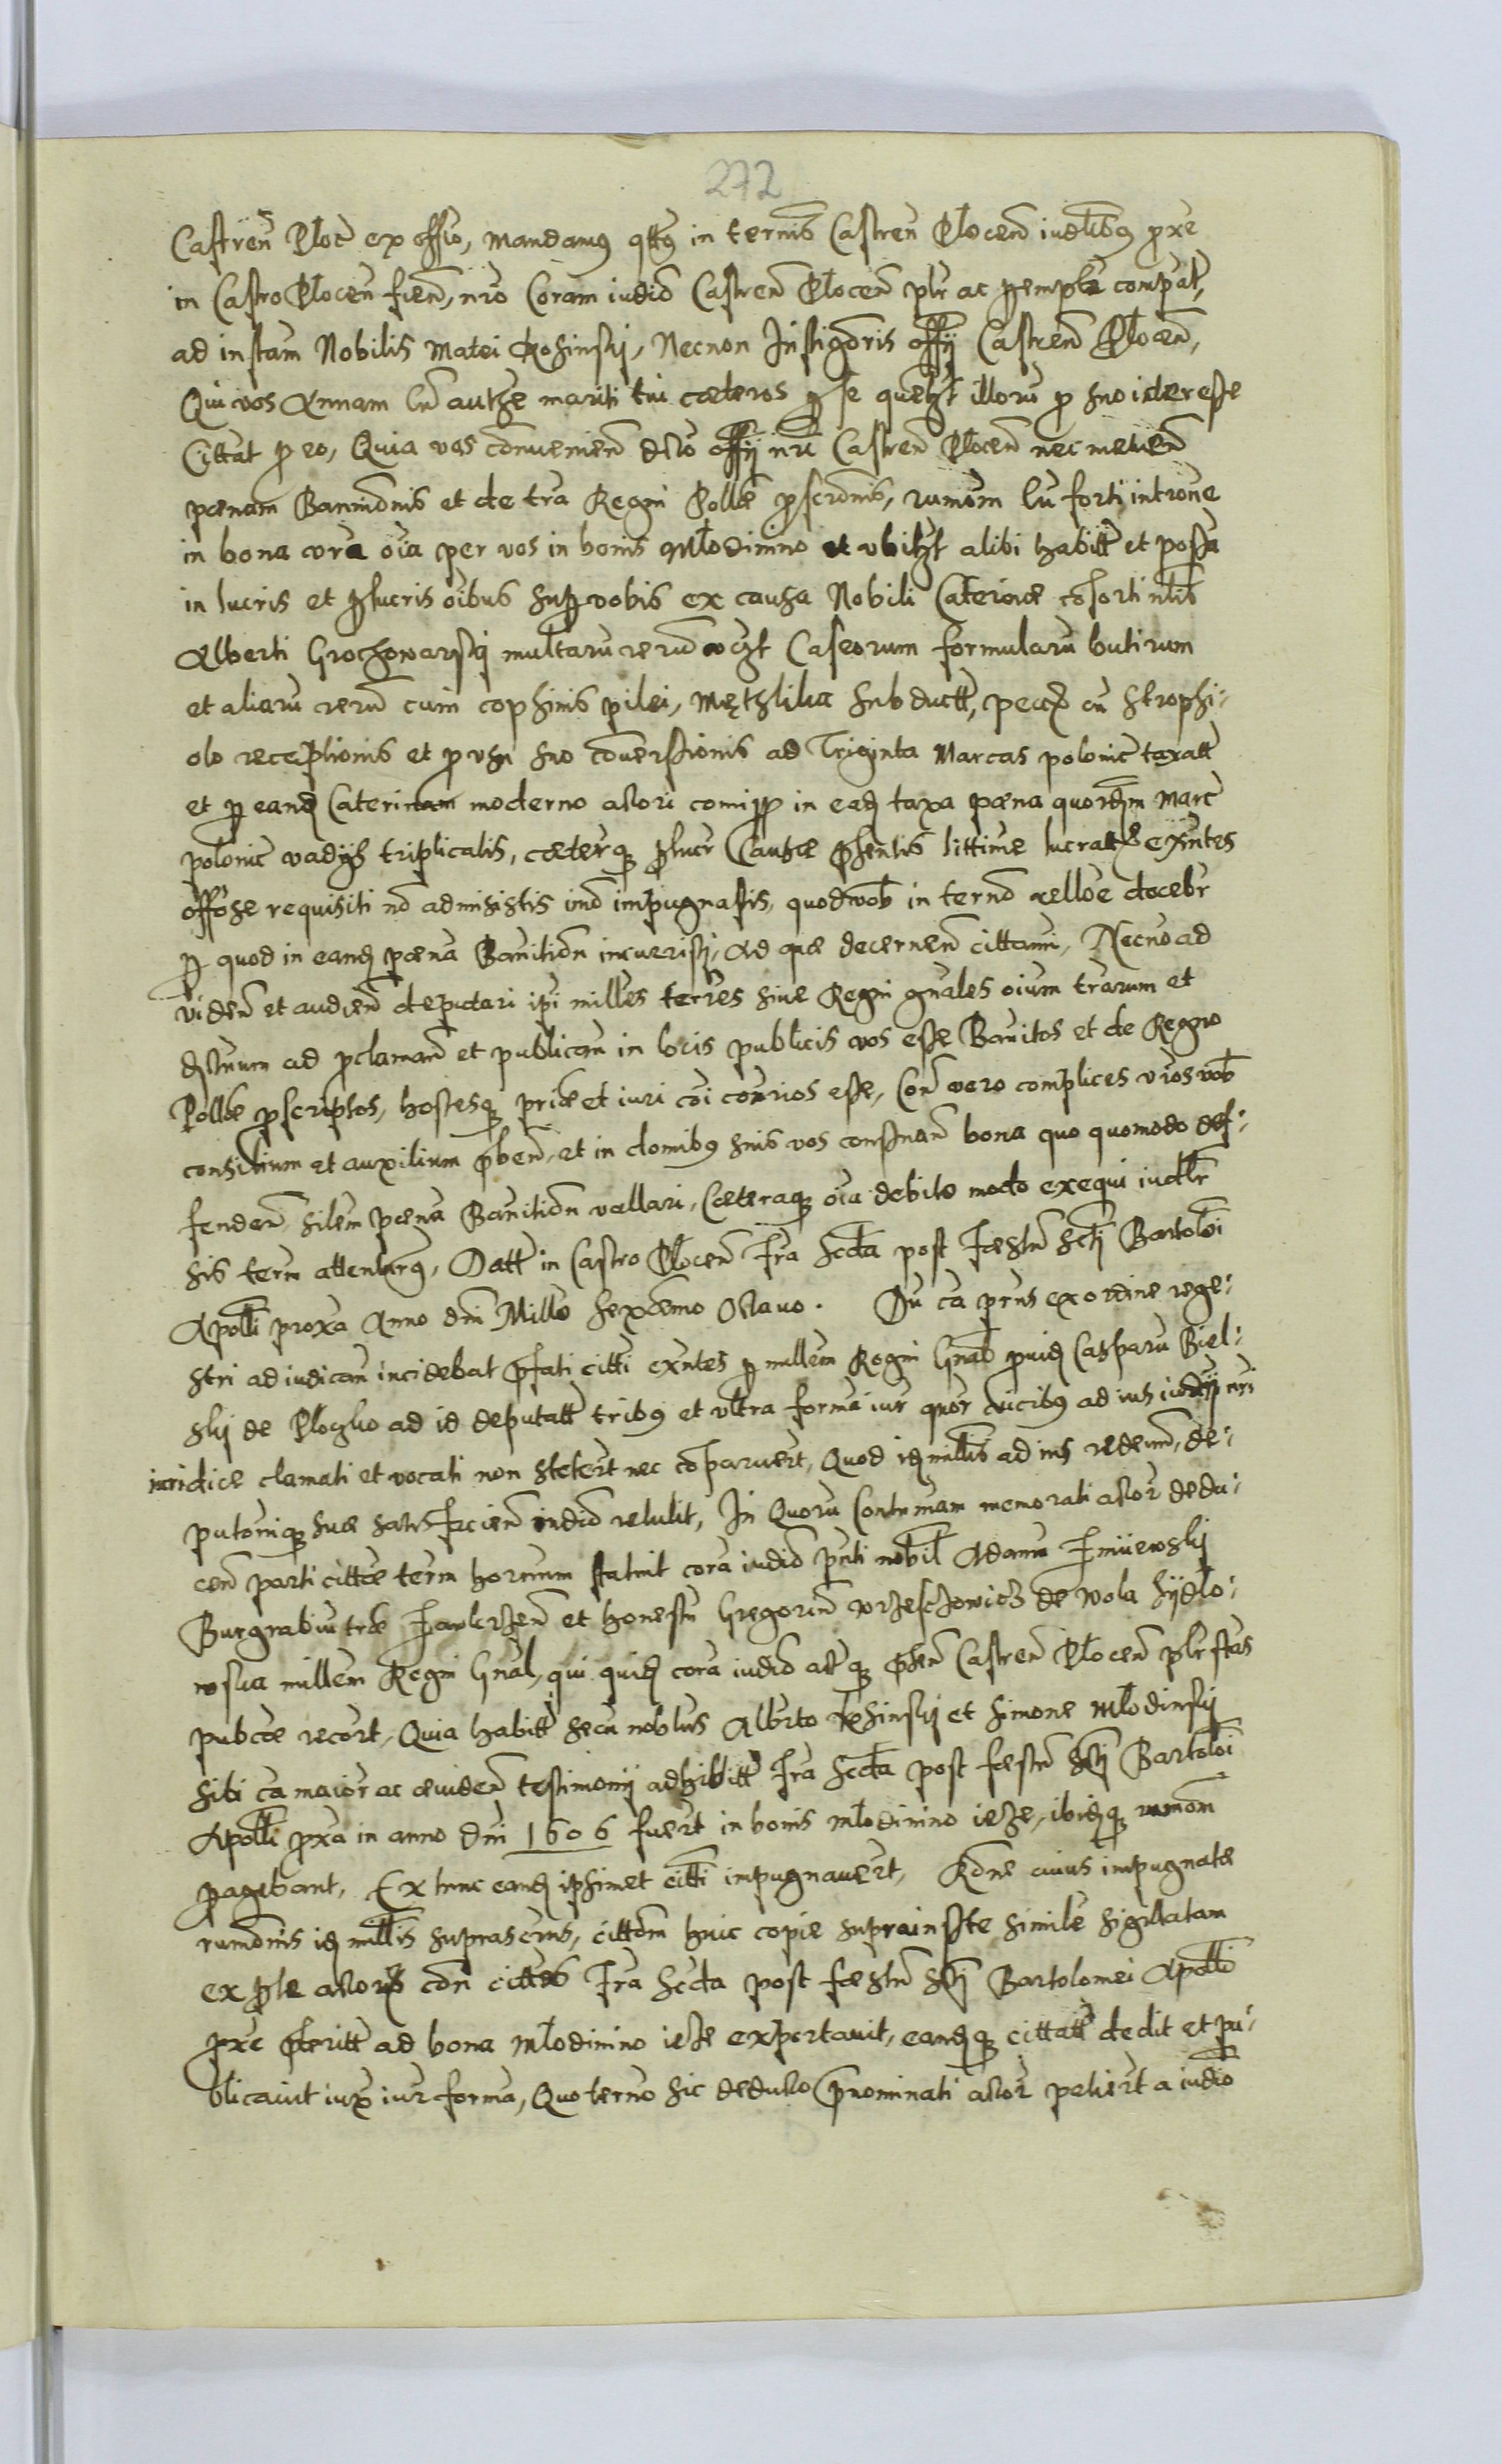 272
Castren Ploc ex offio, mandamus qtus in termis Castren Plocen iudlibus proxe
in Castro Plocen fien, nro Coram iudio Castren Plocen plr ac peremptr compat,
ad instam Nobilis Matei Kosinskij, Necnon Instigoris offij Castren Plocen,
Qui vos Annam cu authe mariti tui cæteros per se quelzt illoru pro suo interesse
Cittat pro eo, Quia vos convenien dcto offij nri Castren Plocen nec metuen
pænam Bannionis et de tra Regni Pollæ proscronis, rumom cu forti introne
in bona vra oia per vos in bonis Młodinino et ubilzt alibi habitt et possa
in lucris et perlucris oibus super vobis ex causa Nobili Caterinæ cosorti nlis
Alberti Grochowarskij multaru reru vczt Caseorum formularu butirum
et aliaru reru cum cophinis pilei, Mętzlika subductt, pecca cu Strophi-
olo receptionis et pro usu suo conversionis ad Triginta Marcas polonic taxatt
et per eand Caterinam moderno actori in ead taxa pæna quordm Marc
polonic vadijs triplicalis, cæterque perlucr Causæ præsentis littime lucratt exntes
offose requisiti no admisistis imo impugnastis, quod vob in termo docebr
per quod in eand pæna Banition incurristi, Ad quæ decernen cittami, Necno ad
viden et audien deputari ipi milles terres sive Regni gnales oium trarum et
ad proclaman et publican in locis publicis vos esse Banitos et de Regno
Pollæ proscriptos, hostesque priæ et iuri coi conrios esse, Con vero complices vros vob
consilium et auxilium præben, et in domibus suis vos consman bona quo quomodo def-
fenden silem pæna Banition vallari, Cæteraque oia debito modo exequi iudlr
sis term attenturus, Datt in Castro Plocen fra Scda post fæstu Scti Bartoloi
Apolli proxa Anno dni Millo sexcmo Octavo. Du ca prns ex ordine rege-
stri ad iudicam incidebat præfati citti exntes per millem Regni Gnal provid Casparu Biel-
skij de Plocko ad id deputatt tribus et ultra forma iur quor vicibus ad ius iudij nri
iuridice clamati et vocati non stetert nec coparuert, Quod id millis ad ius redeun, de-
putonique suæ satisfacien iudio retulit, In Quoru Contumam memorati actor dedu-
cen parti cittæ term hornum statuit cora iudio pnti nobil Adamu
Burgrabiu et honestu Gregoriu de Wola Sijdło-
wska millem Regni Gnal, qui quid cora iudio actque præsen Castren Plocen plr stas
pubcæ recort, Quia habitt secu noblus Albrto Kosinskij et Simone Młodinskij
sibi ca maior ac æviden testimonij adhibitt fra Scda post fæstu Scti Bartoloi
Apolli proxa in anno dni 1606 fuert in bonis Młodinino ieze, ibidque rumom
peragebant, Ex tunc eand ipsimet citti impugnavert, Rone cuius impugnatæ
rumonis id millis suprascrus, cittom huic copiæ suprainstæ simile sigillatam
ex parte actor con cittos fra Scda post fæstu Scti Bartolomei Apolli
proxe præteritt ad bona Młodinino ieze exportavit, eandque cittatt dedit et pu-
blicavit iux iur forma, Quo termo sic deducto prænominati actor petiert a iudio